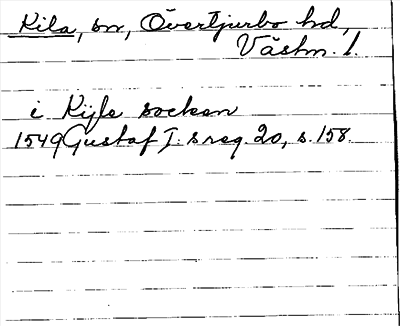 Kila, sn, Övertjurbo hd,
Västm. l.
i Kijle socken
1549 Gustaf I:s reg. 20, s. 158.